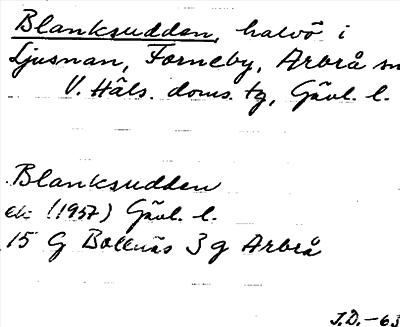 Blanksudden, halvö i
Ljusnan, Forneby, Arbrå sn
V. Häls. doms. tg, Gävl. l.
Blanksudden
ek (1957) Gävl. l.
15 G Bollnäs 3 g Arbrå
J.D. -63